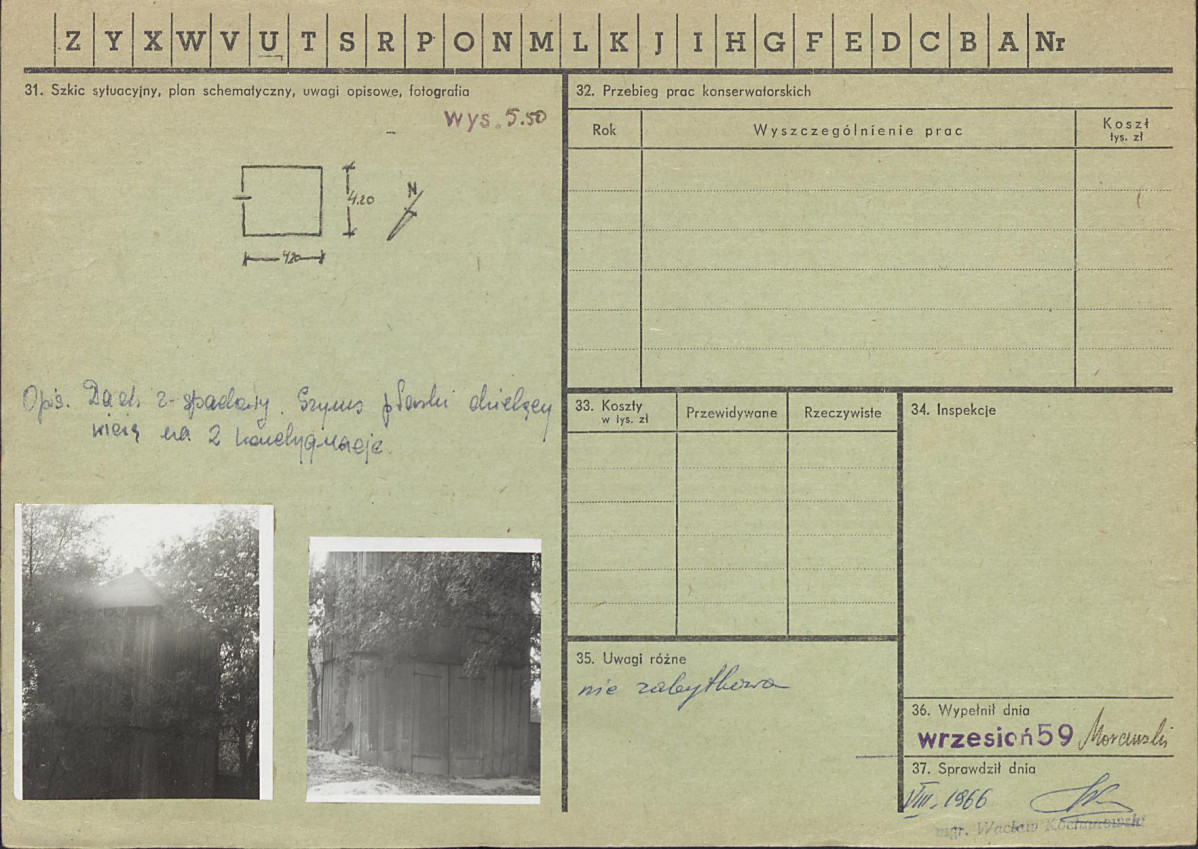 Z Y X W V U T S R P O N M L K J I H G F E D C B A Nr
31. Szkic sytuacyjny, plan schematyczny, uwagi opisowe, fotografia
wys. 5.50
4.20
N
4.20
Opis. Dach 2-spadowy. Gzyms płaski dzielący
wieżę na 2 kondygnacje.
32. Przebieg prac konserwatorskich
Rok
Wyszczególnienie prac
Koszt
tys. zł
33. Koszty
w tys. zł
Przewidywane
Rzeczywiste
34. Inspekcje
35. Uwagi różne
nie zabytkowa
36. Wypełnił dnia
wrzesień 59
37. Sprawdził dnia
VIII. 1966
mgr. Wacław Kochanowski